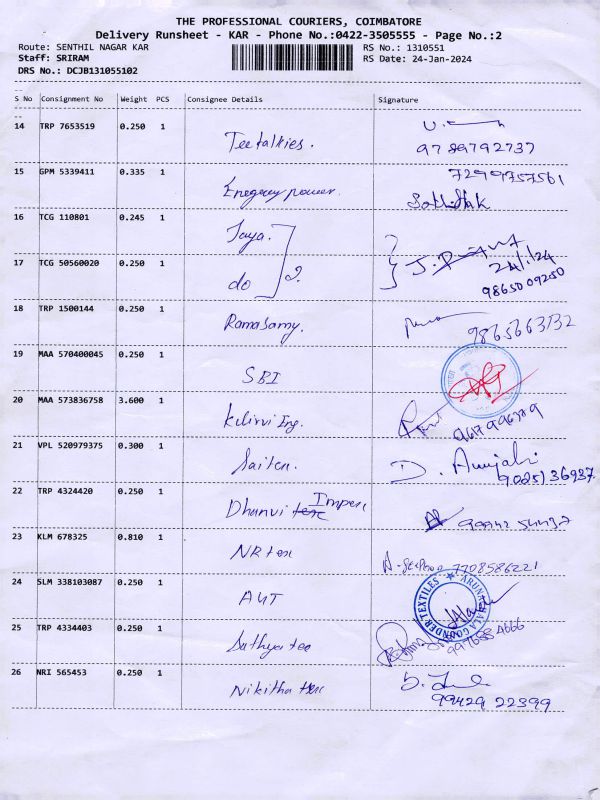 THE PROFESSIONAL COURIERS, COIMBATORE
Delivery Runsheet - KAR - Phone No.:0422-3505555 - Page No.:2
Route: SENTHIL NAGAR KAR RS No.: 1310551
Staff: SRIRAM RS Date: 24-Jan-2024
DRS No.: DCJB131055102
S No Consignment No Weight PCS Consignee Details Signature
14 TRP 7653519 0.250 1 Teetalkies.
9789792737
15 GPM 5339411 0.335 1 Enegeay power. 7299757561
16 TCG 110801 0.245 1 Jaya.
24/1/24
17 TCG 50560020 0.250 1 do 2.
9865009250
18 TRP 1500144 0.250 1 Ramasamy. 9865663132
19 MAA 570400045 0.250 1 SBI
20 MAA 573836758 3.600 1
21 VPL 520979375 0.300 1 D. Anujali
22 TRP 4324420 0.250 1 Dhanvi
23 KLM 678325 0.810 1 NR tex 7708586221
24 SLM 338103087 0.250 1 AUT ARUNACHALA GOUNDER TEXTILES
25 TRP 4334403 0.250 1 Sathya tex
26 NRI 565453 0.250 1 Nikitha
99429 22399